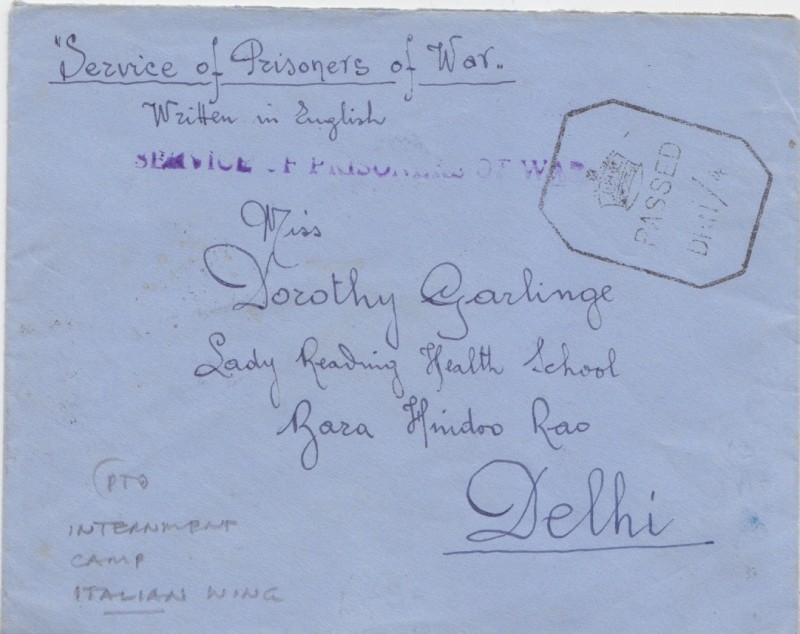 "Service of Prisoners of War„
Written in English
SERVICE OF PRISONERS OF WAR
PASSED
DHH/4
Miss
Dorothy Garlinge
Lady Reading Health School
Bara Hindoo Rao
Delhi
PTO
INTERNMENT
CAMP
ITALIAN WING